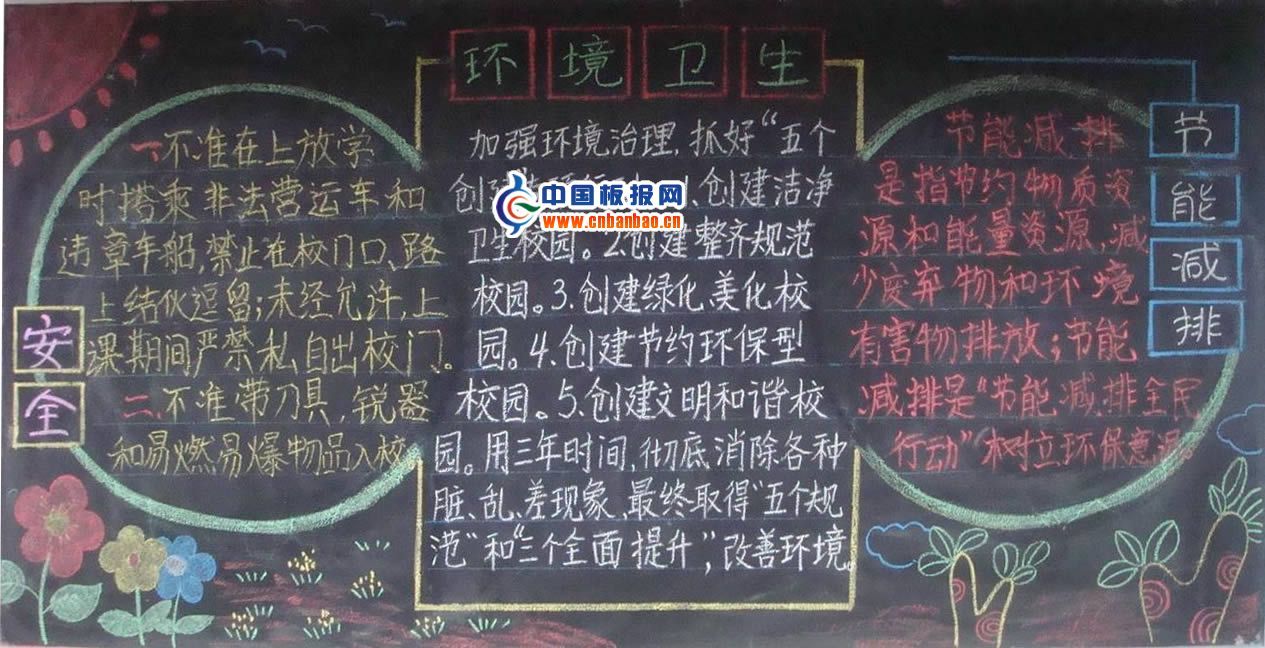 安全
一、不准在上放学
时搭乘非法营运车和
违章车船,禁止在校门口、路
上结伙逗留;未经允许,上
课期间严禁私自出校门。
二、不准带刀具,锐器
和易燃易爆物品入校
环境卫生
加强环境治理,抓好“五个
创建 创建洁净
中国板报网
www.cnbanbao.cn
卫生校园。2.创建整齐规范
校园。3.创建绿化、美化校
园。4.创建节约环保型
校园。5.创建文明和谐校
园。用三年时间,彻底消除各种
脏、乱、差现象,最终取得“五个规
范”和“三个全面提升”,改善环境。
节能减排
节能减排
是指节约物质资
源和能量资源,减
少废弃物和环境
有害物排放;节能
减排是“节能减排全民
行动”树立环保意识